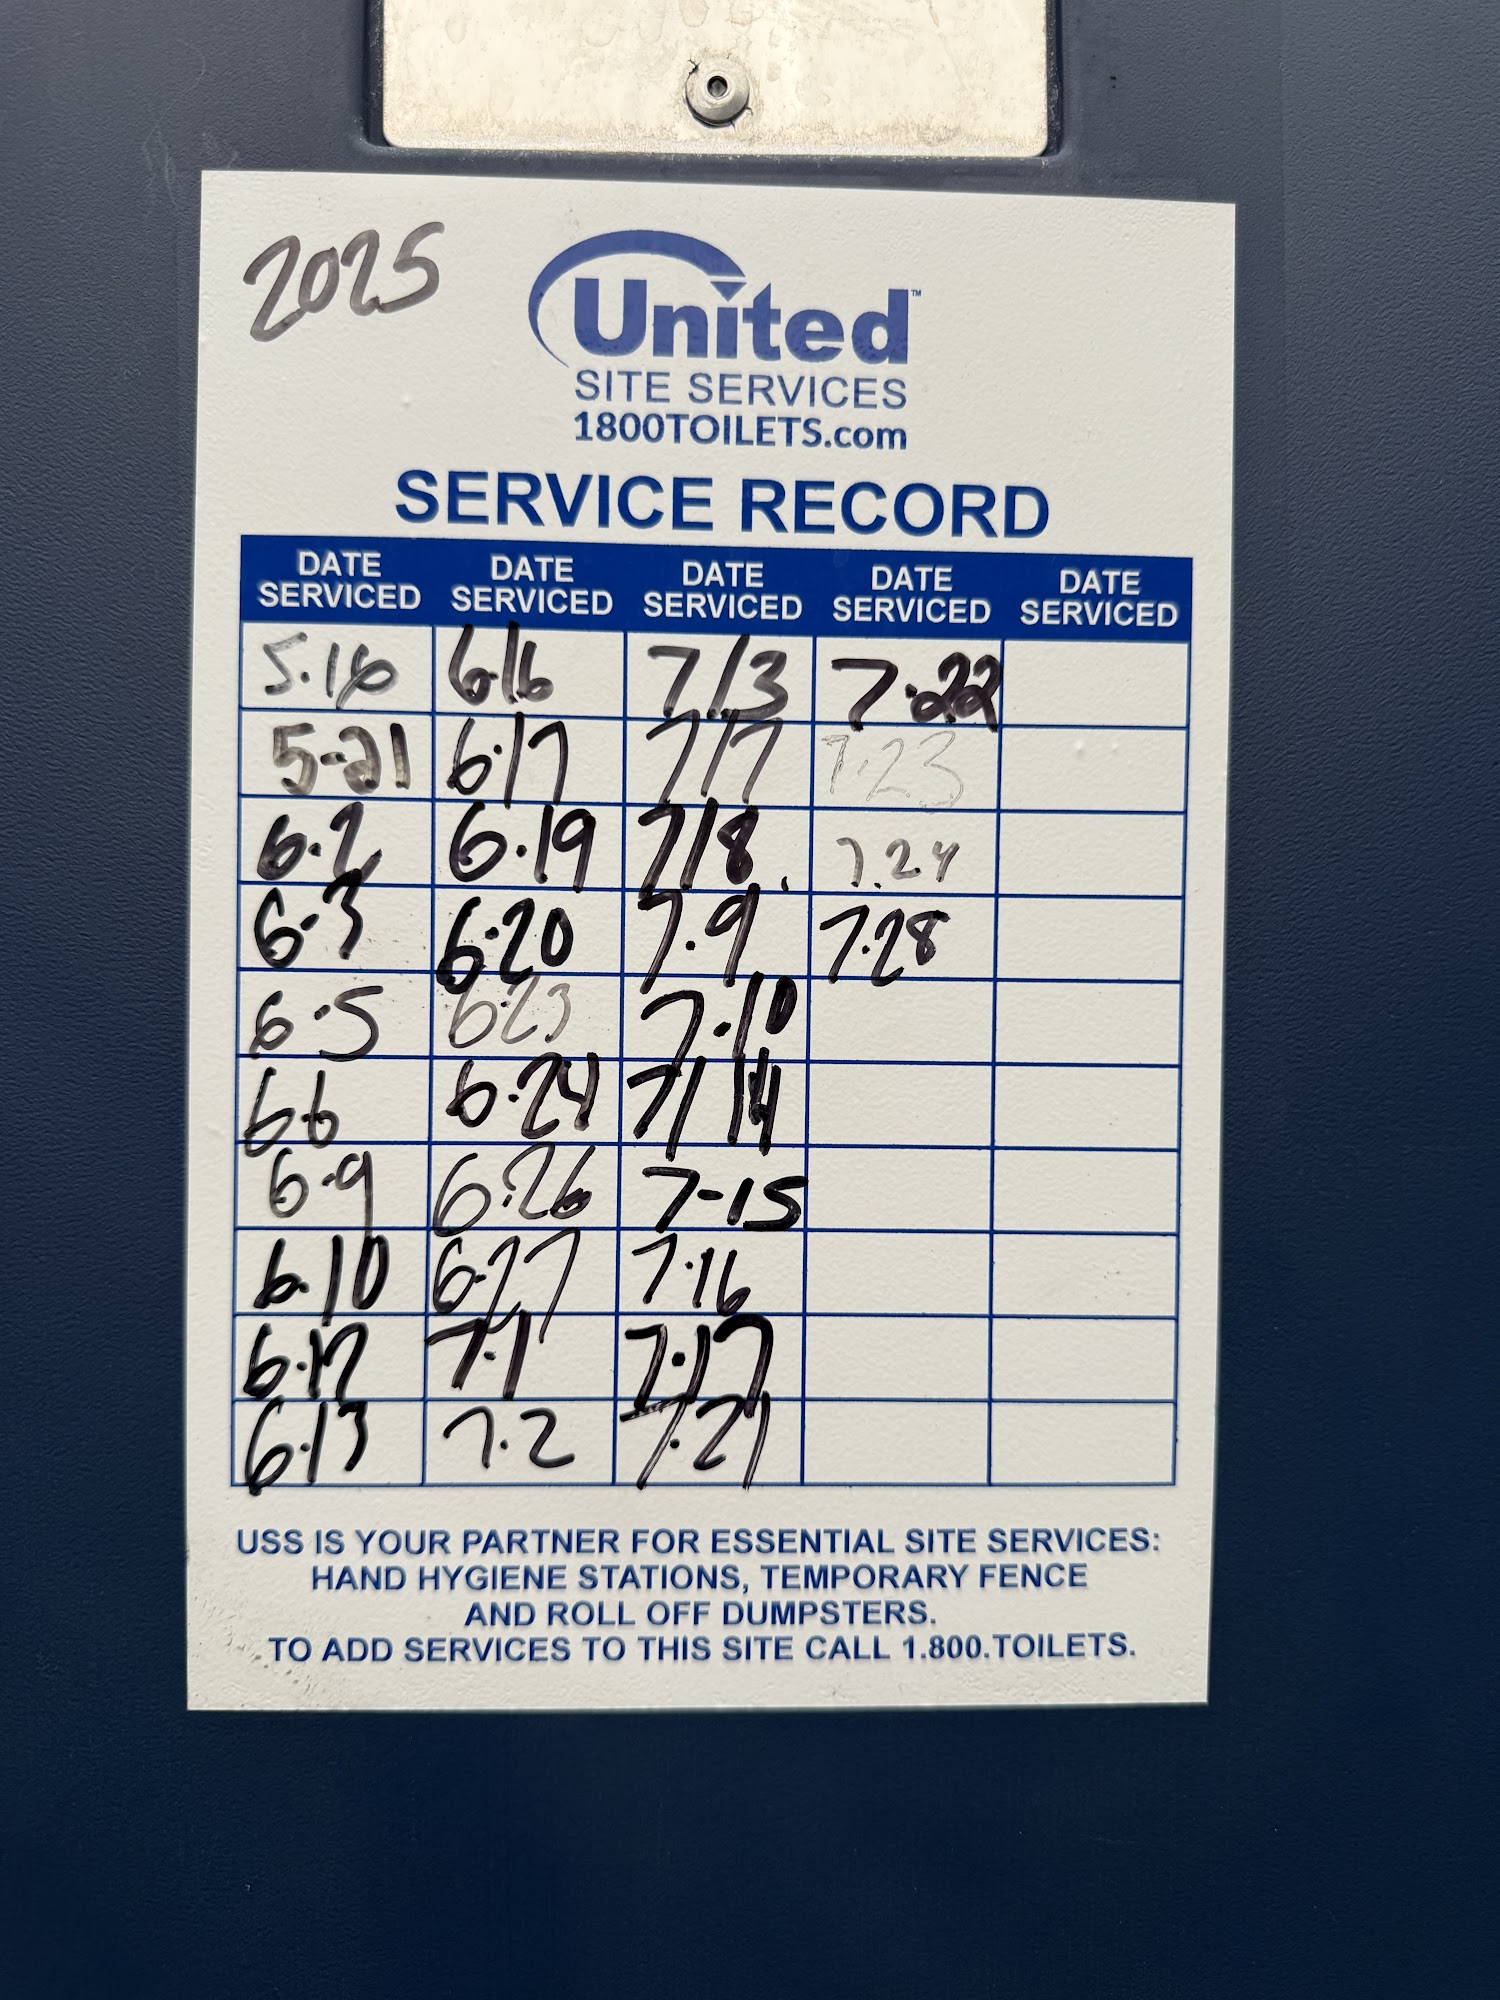 2025
United™
SITE SERVICES
1800TOILETS.com
SERVICE RECORD
DATE SERVICED DATE SERVICED DATE SERVICED DATE SERVICED DATE SERVICED
6.16 7/3 7.22
5-21 6.17 7/7 7.23
6.2 6.19 7/8 7.24
6.3 6.20 7.9 7.28
6.5 6.23 7.10
6.6 6.24 7/14
6.9 6.26 7-15
6.10 6.27 7.16
7.1 7.17
6.13 7.2 7.21
USS IS YOUR PARTNER FOR ESSENTIAL SITE SERVICES:
HAND HYGIENE STATIONS, TEMPORARY FENCE
AND ROLL OFF DUMPSTERS.
TO ADD SERVICES TO THIS SITE CALL 1.800.TOILETS.